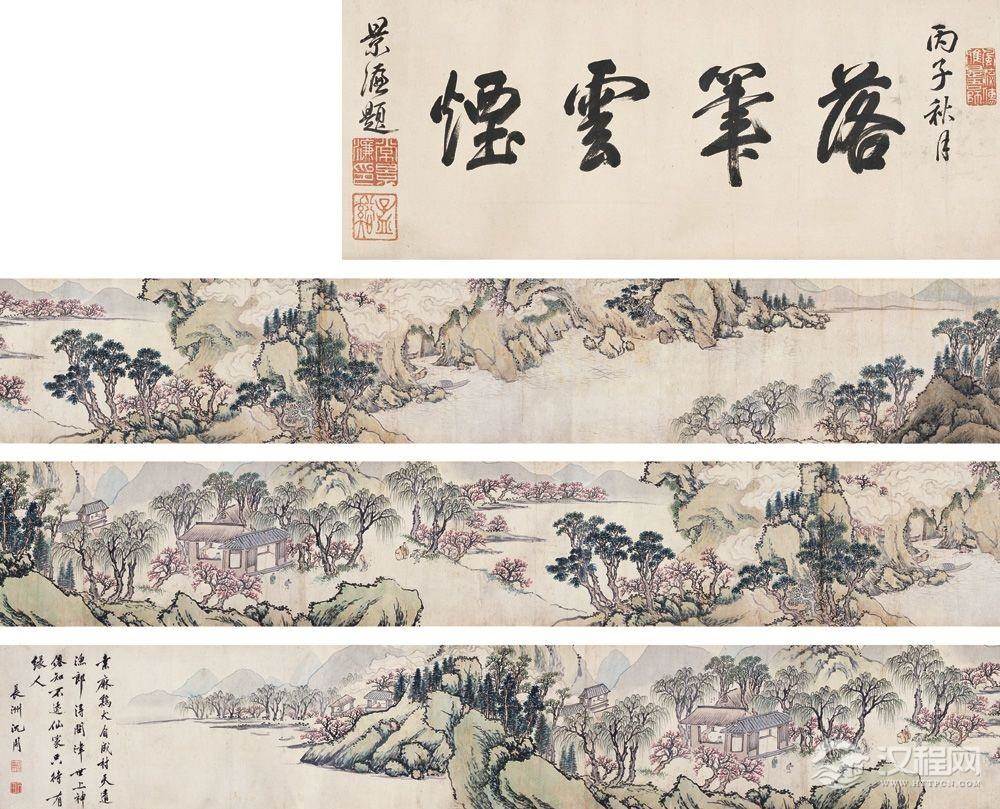 丙子秋月
落筆雲煙
景濂題
桒麻鷄犬自成村天遣
漁郎得問津世上神
僊知不遠仙家只待有
緣人
長洲沈周
汉程网
HTTPCN.COM